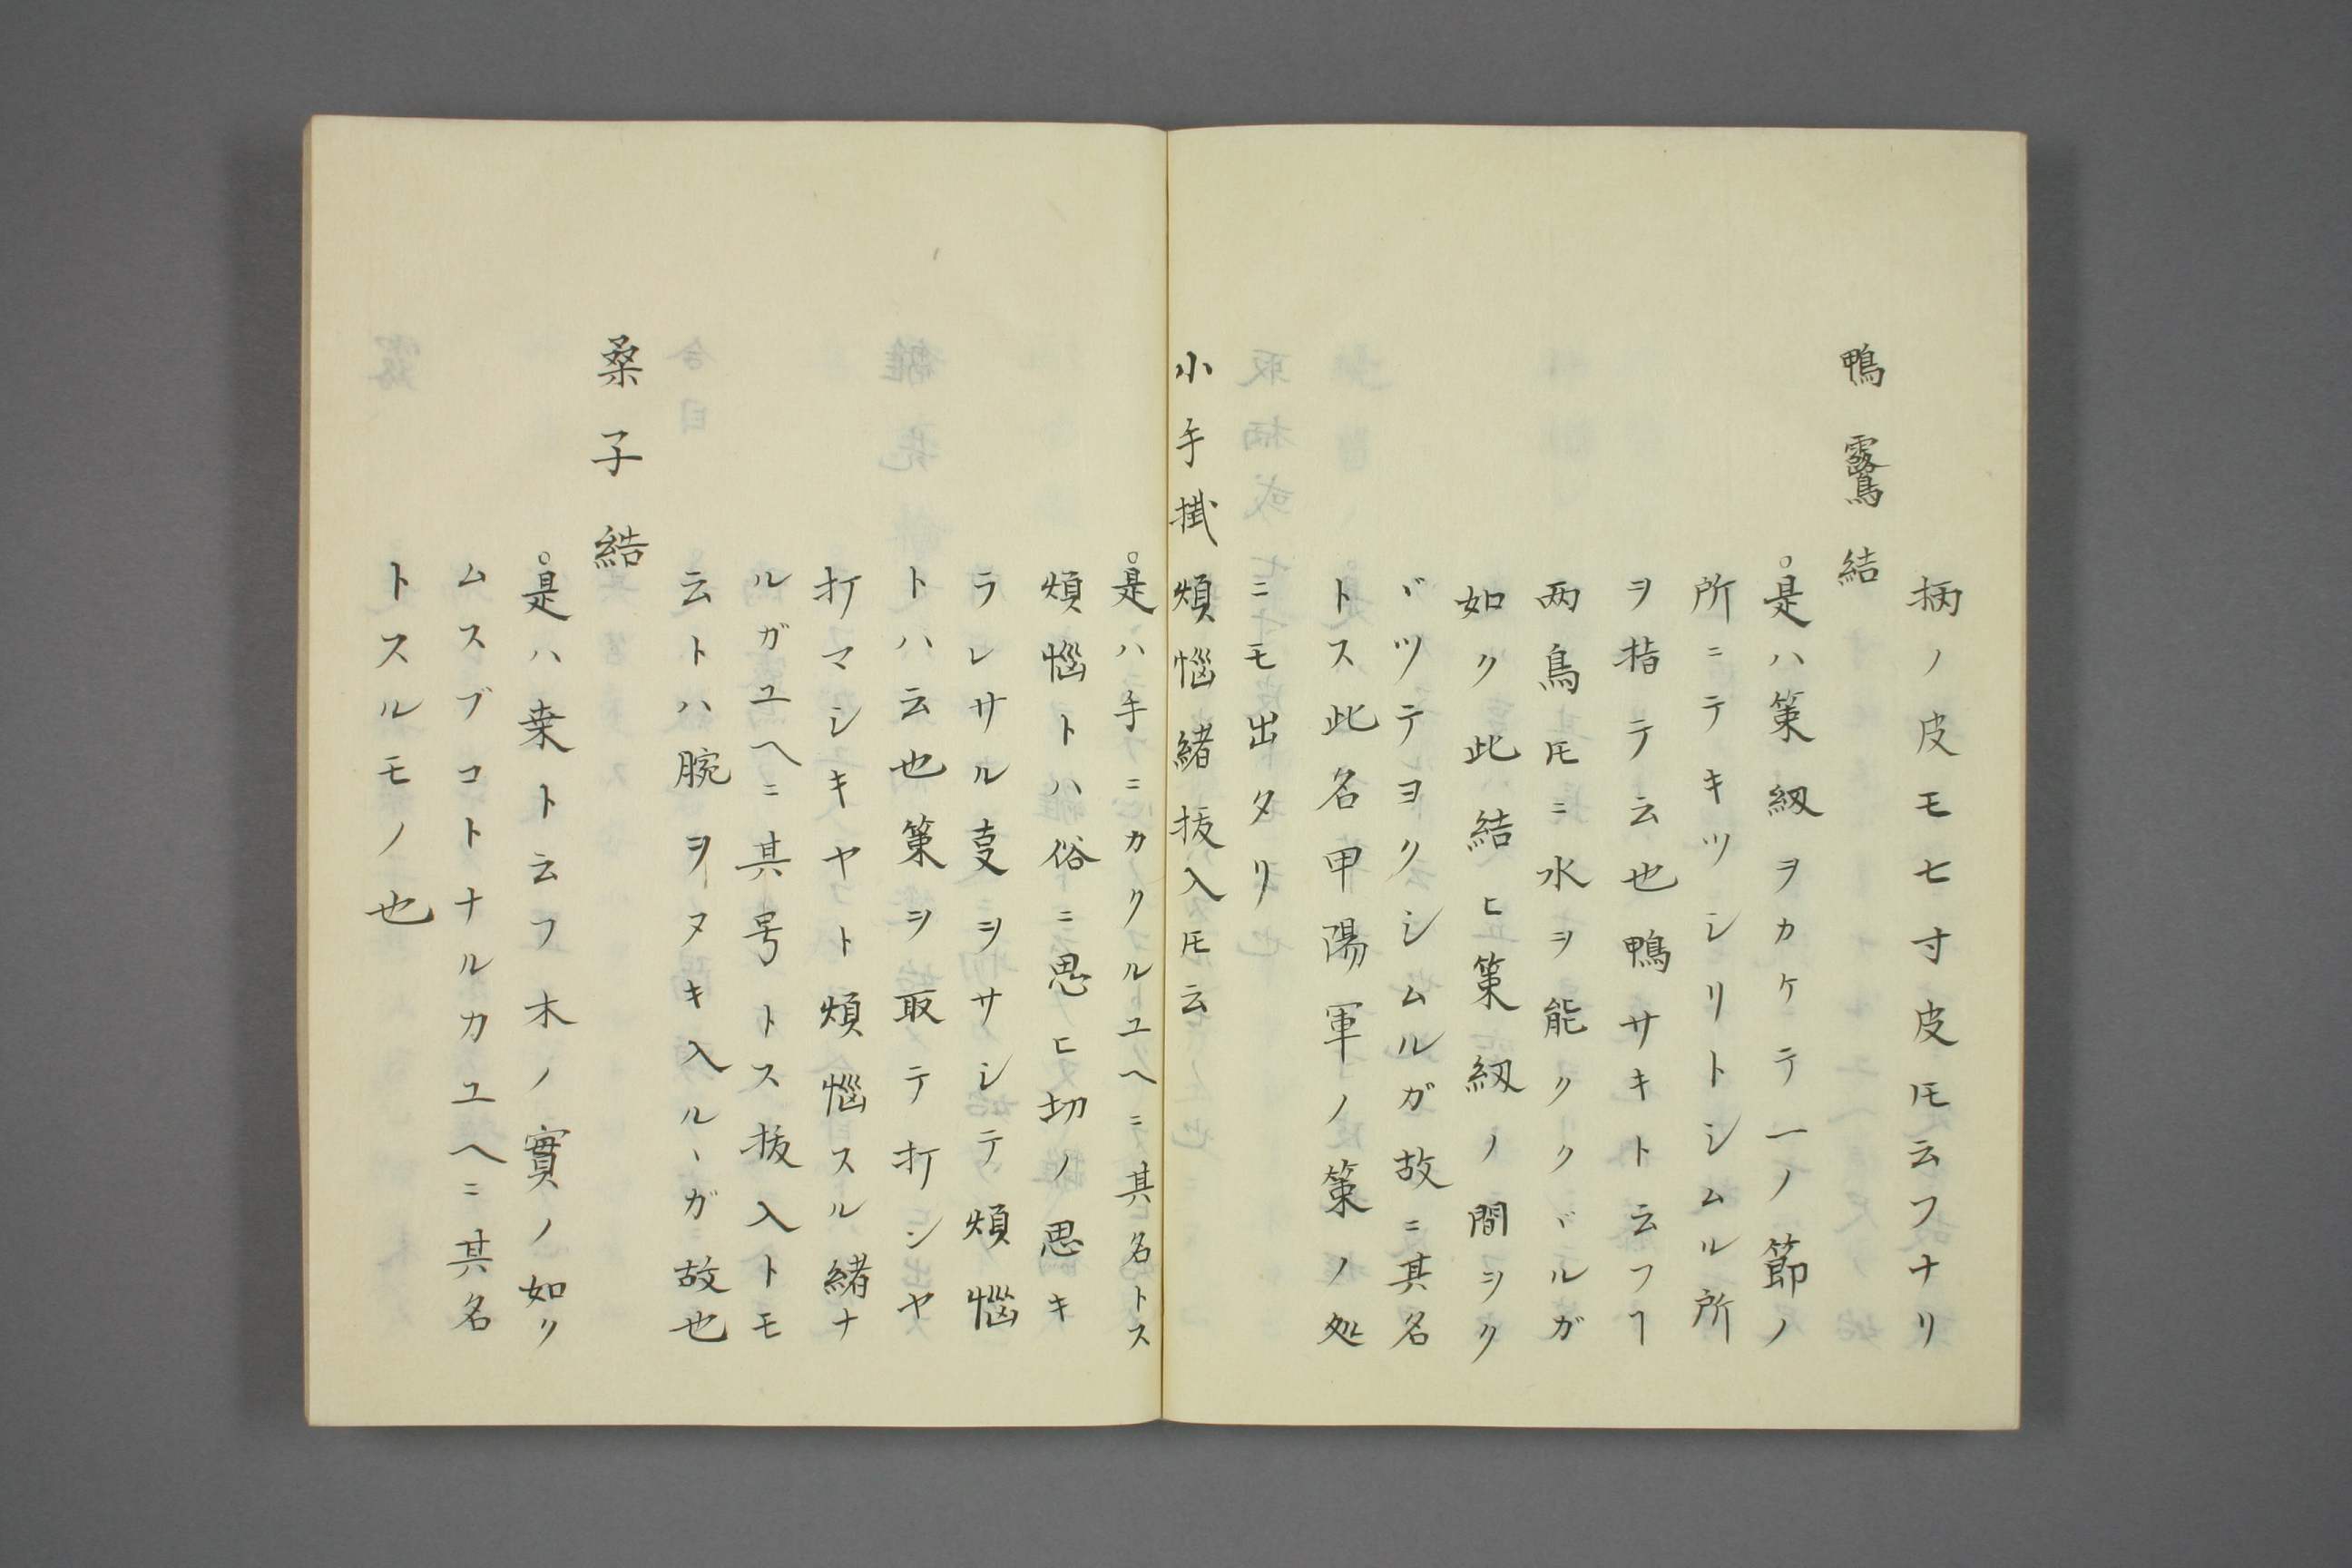 柄ノ皮モ七寸皮𪜈云フナリ
鴨鷺結
。是ハ策紉ヲカケテ一ノ節ノ
所ニテキツシリトシムル所
ヲ指テ云也鴨サキト云フヿ
两鳥𪜈ニ水ヲ能クヾルガ
如ク此結ヒ策紉ノ間ヲク
ヾツテヨクシムルガ故ニ其名
トス此名甲陽軍ノ策ノ処
ニモ出タリ
小手掛煩悩緒抜入𪜈云
。是ハ手ニカクルユヘニ其名トス
煩悩トハ俗ニ思ヒ切ノ思キ
ラレサル叓ヲサシテ煩悩
トハ云也策ヲ取テ打シヤ
打マシキヤト煩悩スル緒ナ
ルガユヘニ其号トス抜入トモ
云トハ腕ヲヌキ入ルヽガ故也
桑子結
。是ハ桒ト云フ木ノ實ノ如リ
ムスブコトナルカユヘニ其名
トスルモノ也